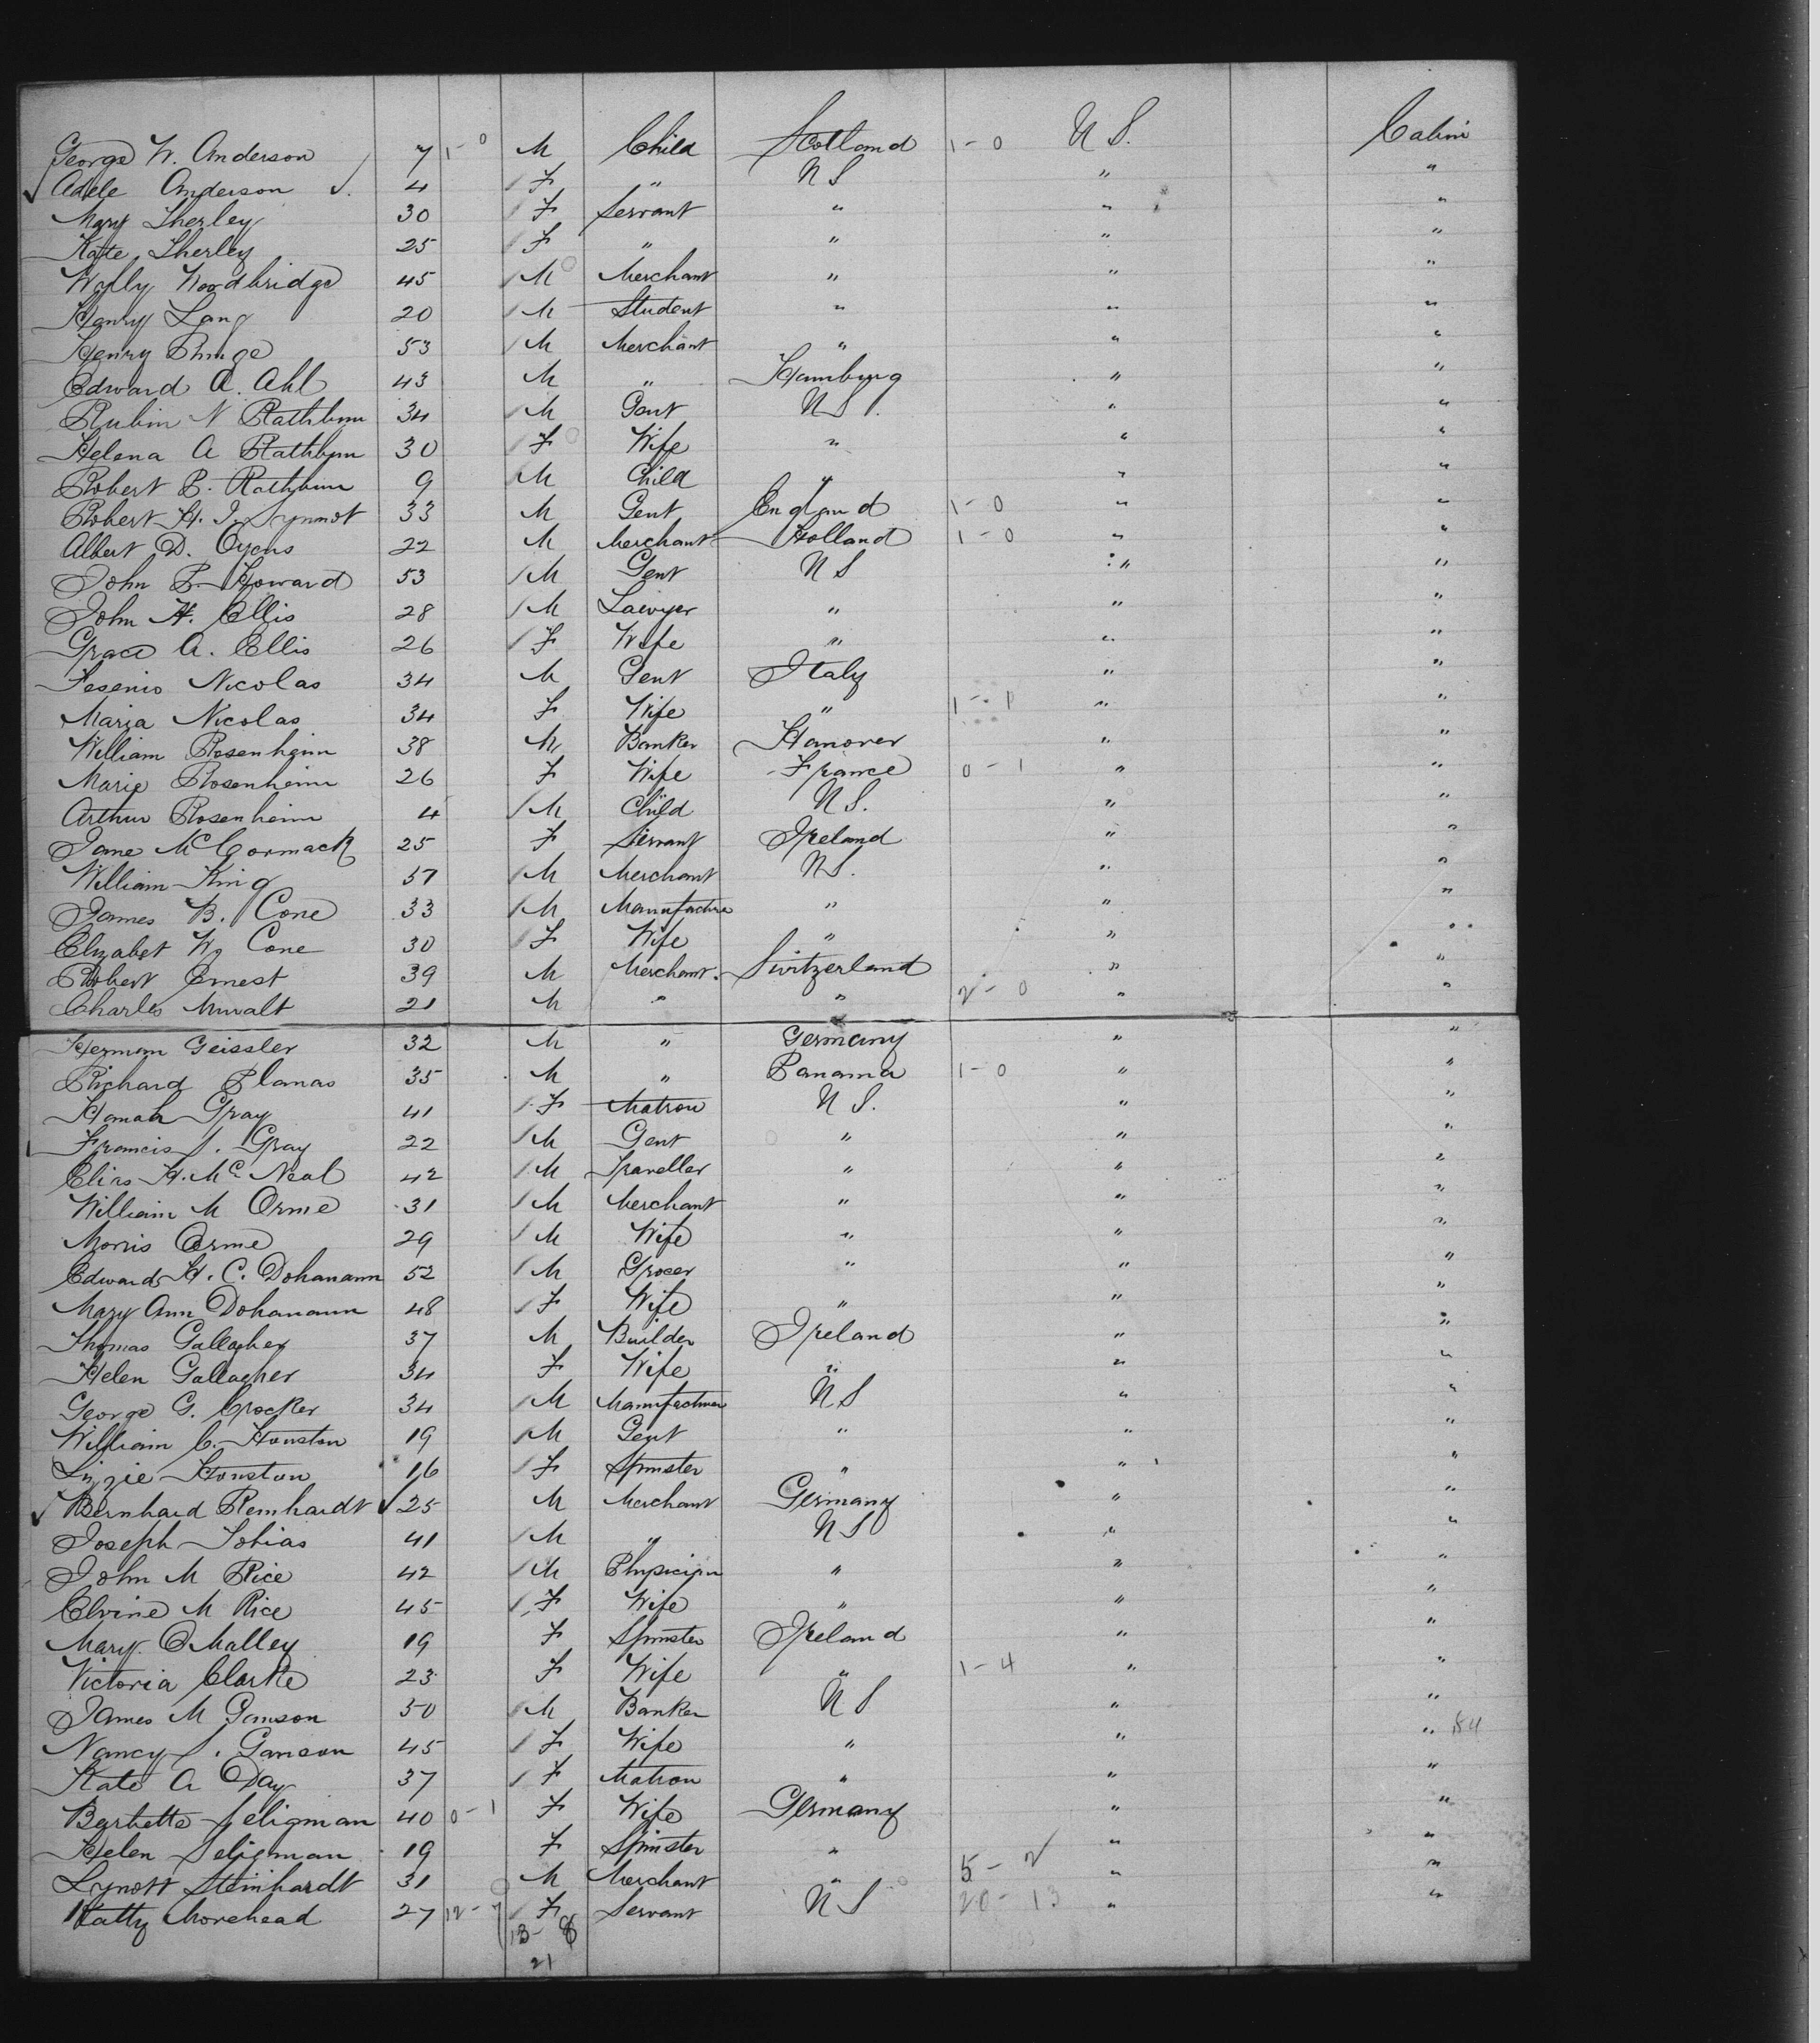 George W. Anderson 7 1-0 M Child Scotland 1-0 U S. Cabin
Adele Anderson 4 F " U S " "
Mary Sherley 30 F Servant " " "
Kate Sherley 25 F " " " "
Wylly Woodbridge 45 M Merchant " " "
Henry Lang 20 M Student " " "
Henry 53 M Merchant " " "
Edward A. Ahl 43 M " Hamburg " "
Rubin N Rathbun 34 M Gent U S. " "
Helena A Rathbun 30 F Wife " " "
Robert P. Rathbun 9 M Child " " "
Robert H. I. Synnot 33 M Gent England 1-0 " "
Albert D. Oyens 22 M Merchant Holland 1-0 " "
John P. Howard 53 M Gent U S " "
John H. Ellis 28 M Lawyer " " "
Grace A. Ellis 26 F Wife " " "
Nicolas 34 M Gent Italy " "
Maria Nicolas 34 F Wife " 1-1 " "
William Rosenheim 38 M Banker Hanover " "
Marie Rosenheim 26 F Wife France 0-1 " "
Arthur Rosenheim 4 M Child U S. " "
Jane McCormack 25 F Servant Ireland " "
William King 57 M Merchant U S. " "
James B. Cone 33 M Manufactre " " "
Elizabet W. Cone 30 F Wife " " "
Robert Ernest 39 M Merchant. Switzerland " "
Charles Muralt 21 M " " 2-0 " "
Herman Geissler 32 M " Germany " "
Richard Planas 35 M " Panama 1-0 " "
Hanah Gray 41 F Matron U S. " "
Francis S. Gray 22 M Gent " " "
Elias H. Mc Neal 42 M Traveller " " "
William M Orme 31 M Merchant " " "
Morris Orme 29 M Wife " " "
Edward H. C. Dohanann 52 M Grocer " " "
Mary Ann Dohanann 48 F Wife " " "
Thomas Gallagher 37 M Builder Ireland " "
Helen Gallagher 34 F Wife " " "
George G. Crocker 34 M Manufacturer U S " "
William C. Houston 19 M Gent " " "
Lizzie Houston 16 F Spinster " " "
Bernhard Reinhardt 25 M Merchant Germany " "
Joseph Tobias 41 M " U S " "
John M Rice 42 M Physician " " "
Elvine M Rice 45 F Wife " " "
Mary O Malley 19 F Spinster Ireland " "
Victoria Clarke 23 F Wife " 1-4 " "
James M Ganson 50 M Banker U S " "
Nancy S. Ganson 45 F Wife " " " 84
Kate A Day 37 F Matron " " "
Barbette Seligman 40 0-1 F Wife Germany " "
Helen Seligman 19 F Spinster " " "
Lynott Steinhardt 31 M Merchant " 5-2 " "
Katty Morehead 27 12-7 F Servant U S 20-13 " "
13-8
21